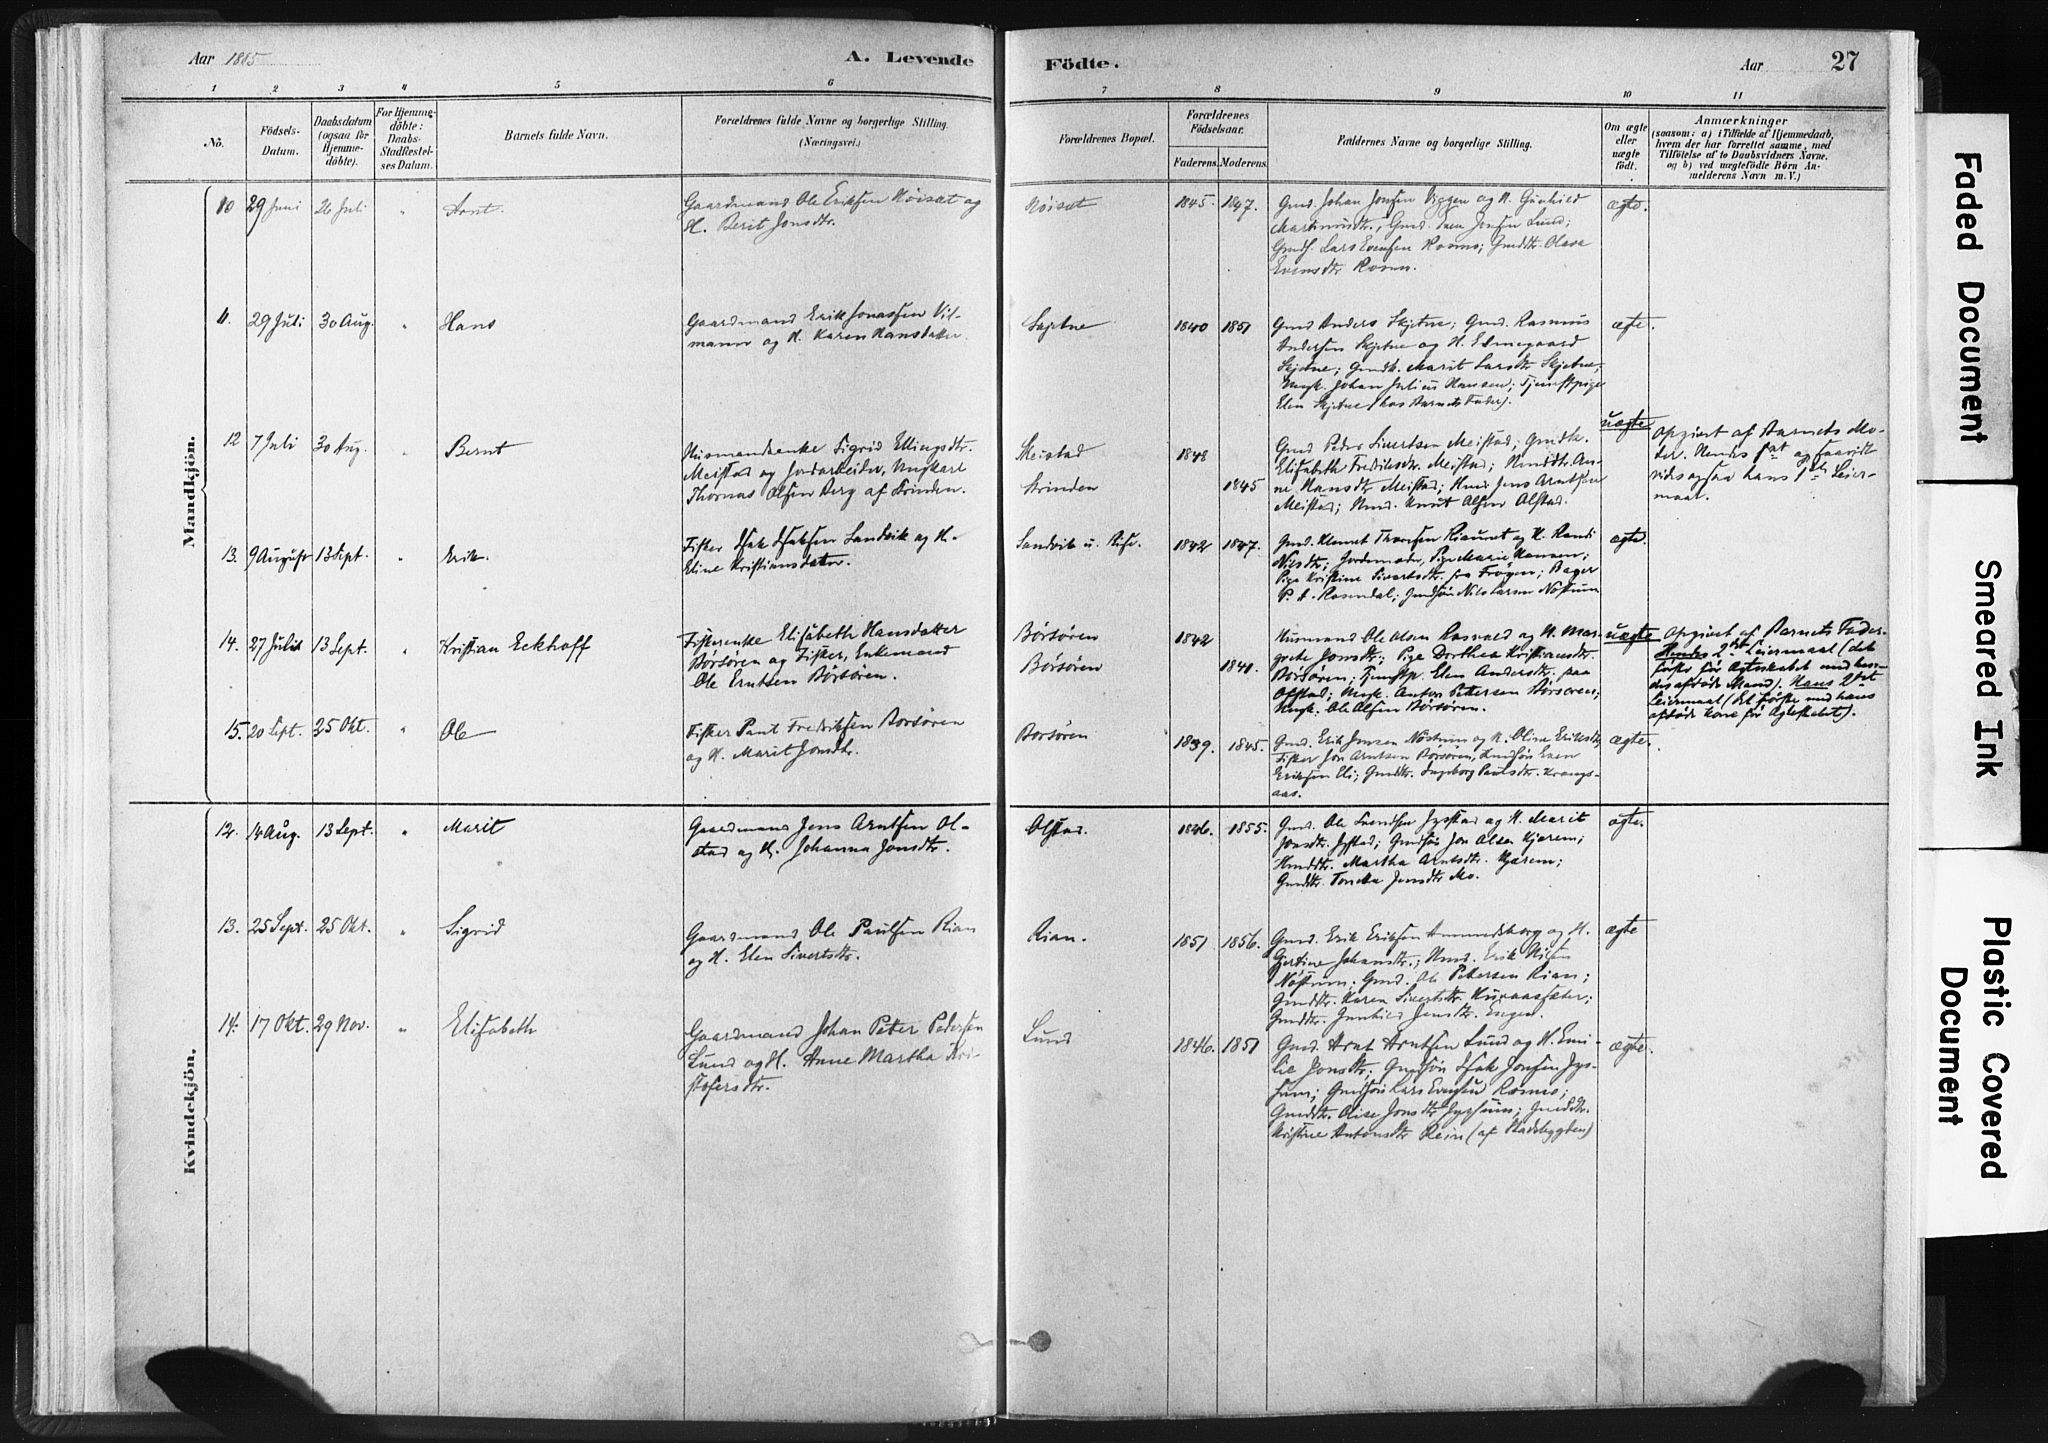 Aar 1885
A. Levende
Födte.
Aar
27
1 2 3 4 5 6 7 8 9 10 11
No.
Födsels-
Datum.
Daabsdatum
(ogsaa for
Hjemme-
döbte).
For Hjemme-
döbte:
Daabs-
Stadfæstel-
ses Datum.
Barnets fulde Navn.
Forældrenes fulde Navne og borgerlige Stilling.
(Næringsvei.)
Forældrenes Bopæl.
Forældrenes
Födselsaar.
Faderens. Moderens.
Faddernes Navne og borgerlige Stilling.
Om ægte
eller
uægte
födt.
Anmærkninger
(saasom: a) i Tilfælde af Hjemmedaab,
hvem der har forrettet samme, med
Tilföielse af to Daabsvidners Navne.
og b) ved uægtefödte Börn An-
melderens Navn m. V.)
Mandkjön.
10 29 Juni 26 Juli " Arnt.
Gaardmand Ole Eriksen Röiset og
H. Berit Jonsdtr.
Röiset 1845. 1847.
Gmd. Johan Jonsen Viggen og H. Gunhild
Martinusdtr.; Gmd. Jonsen Lund;
Gmds. Lars Evensen Rosmo; Gmddtr. Olava
Evensdtr
ægte.
11. 29 Juli 30 Aug. " Hans
Gaardmand Erik Jonassen Vil-
mann og H. Karen Hansdatter.
Skjetne 1840 1851
Gmd Anders Skjetne; Gmd. Rasmus
Andersen Skjetne og H.
Skjetne; Gmdk. Marit Larsdtr Skjetne;
Ungk. Johan Julius Hansen; Tjenestpige
Elen Skjetne (hos Barnets Fader).
ægte.
12 7 Juli 30 Aug. " Bernt
Husmandsenke Sigrid Ellingsdtr.
Meistad og Jordarbeider, Ungkarl
Thomas Olsen Berg af Strinden.
Meistad
Strinden
1848
1845
Gmd Peder Sivertsen Meistad; Gmdk.
Elisabeth Fredriksdtr. Meistad; An-
ne Hansdtr Meistad; Hmd. Jens Arntsen
Meistad; Knut Olsen Olstad.
uægte
Opgivet af Barnets Mo-
der. Hendes 1st og saavidt
vides ogsaa hans 1ste Leier-
maal.
13. 9 August 13 Sept. " Erik.
Fisker Isak Isaksen Sandvik og H.
Eline Kristiansdatter.
Sandvik u. 1842 1847.
Gmd. Thomsen og H. Randi
Nilsdtr; Jordemoder, Pige Marie Hansen;
Pige Kristine Sivertsdtr. fra Fröyen; Bager
P. A. Rosendal; Gmdsön Nils Larsen Nöstum
ægte.
14. 27 Juli 13 Sept. " Kristian Eckhoff
Fiskerenke Elisabeth Hansdatter
Börsören og Fisker, Enkemand
Ole Erntsen Börsören.
Börsören
Börsören
1842
1841.
Husmand Ole Olsen og H. Mar-
grete Jonsdtr.; Pige Dorthea Kristiansdtr.
Börsören; Tjenestp. Elen Andersdtr. paa
Ofstad; Ungk. Anton Pettersen Börsören;
Ungk. Ole Olsen Börsören.
uægte
Opgivet af Barnets Fader.
Hendes 2det Leiermaal (det
første før Ægteskabet med hen-
des afdøde Mand). Hans 2det
Leiermaal (det første med hans
afdøde Kone før Ægteskabet).
15. 20 Sept. 25 Okt. " Ole
Fisker Paul Fredriksen Borsören
og H. Marit Jonsdtr.
Borsören 1839. 1845.
Gmd. Erik Jensen Nöstum og H. Oline Eriksdtr,
Fisker Jon Arntsen Börsören, Gmdsön Even
Eriksen Eli; Gmddtr. Ingeborg Paulsdtr. Krangs-
aas.
ægte.
Kvindekjön.
12. 14 Aug. 13 Sept. " Marit
Gaardmand Jens Arntsen Ol-
stad og H. Johanna Jonsdtr.
Olstad. 1846. 1855.
Gmd. Ole Svendsen Jysstad og H. Marit
Jonsdtr. Jysstad; Gmdsön Jon Olsen Kjærem;
Martha Arntsdtr. Kjærem;
Gmddtr. Jonsdtr Mo.
ægte.
13. 25 Sept. 25 Okt. " Sigrid
Gaardmand Ole Paulsen Rian
og H. Elen Sivertsdtr.
Rian. 1851 1856.
Gmd. Erik Eriksen og H.
Gjertine Johansdtr.; Erik Nilsen
Nöstum; Gmd. Ole Petersen Rian;
Gmddtr. Karen Sivertsdtr.
Gmddtr. Gunhild Jensdtr.
ægte
14. 17 Okt. 29 Nov. " Elisabeth
Gaardmand Johan Peter Pedersen
Lund og H. Anne Martha Kri-
stofersdtr.
Lund 1846. 1851
Gmd. Arnt Arntsen Lund og H. Emi-
lie Jonsdtr; Gmdsön Isak Jonsen Jys-
sum; Gmdsön Lars Evensen Rosmo;
Gmddtr. Olise Jonsdtr Jyssum; Gmddtr.
Kristine Antonsdtr Rein (af Stadsbygden)
ægte.
Faded Document
Smeared Ink
Plastic Covered
Document